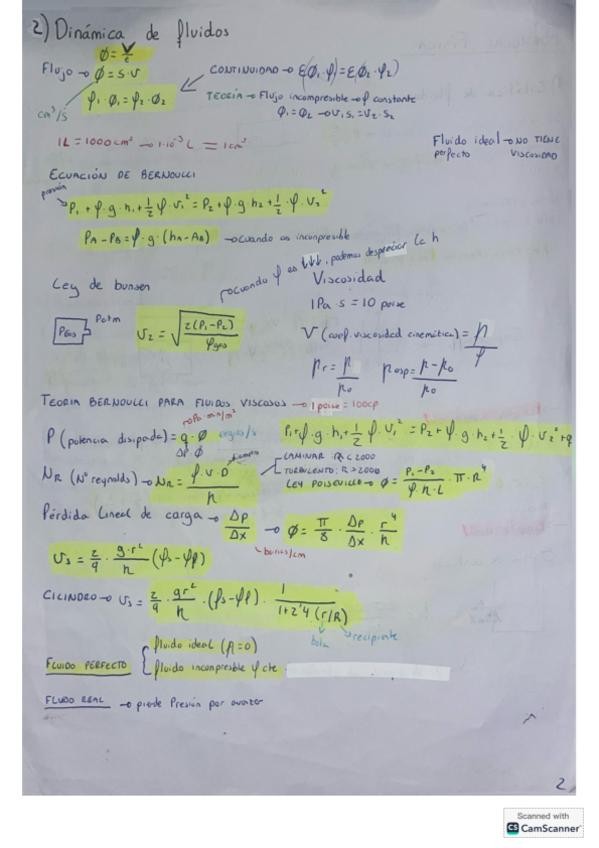 2) Dinámica de fluidos
Ø = V/t
Flujo → Ø = S·v
CONTINUIDAD → Σ(Ø₁·φ) = Σ(Ø₂·φ₂)
φ₁·Ø₁ = φ₂·Ø₂
TEORÍA → Flujo incompresible → φ constante
cm³/s
Φ₁ = Φ₂ → v₁S₁ = v₂·S₂
1L = 1000cm³ → 1·10⁻³ L = 1cm³
Fluido ideal → NO TIENE
perfecto VISCOSIDAD
ECUACIÓN DE BERNOULLI
presión
P₁ + φ·g·h₁ + 1/2 φ·v₁² = P₂ + φ·g·h₂ + 1/2·φ·v₂²
PA - PB = φ·g·(hA - AB) → cuando es inconpresible
→ cuando φ es ↓↓↓, podemos despreciar la h
Ley de bunsen
Viscosidad
1Pa·s = 10 poise
Pgas
Patm
v₂ = √(2(P₁-P₂)/φgas)
V (coef. viscosidad cinemática) = η/φ
ηr = η/η₀
ηesp = η-η₀/η₀
TEORIA BERNOULLI PARA FLUIDOS VISCOSOS → 1 poise = 100cp
P (potencia disipada) = q·Ø
ΔP·Ø
ergios/s
P₁ + φ·g·h₁ + 1/2 φ·v₁² = P₂ + φ·g·h₂ + 1/2·φ·v₂² + q
NR (Nº reynolds) → NR = φ·v·D/η
LAMINAR: R < 2000
TURBULENTO: R > 2000
LEY POISEVILLO → Ø = P₁-P₂/φ·η·L · π·R⁴
Pérdida Lineal de carga → Δp/Δx → Ø = π/8 · Δp/Δx · r⁴/η
barias/cm
vs = 2/9 · g·r²/η (φs - φf)
CILINDRO → vs = 2/9 · gr²/η · (φs - φf) · 1/1+2'4 (r/R)
bola
recipiente
FLUIDO PERFECTO
fluido ideal (η=0)
fluido inconpresible φ cte
FLUIDO REAL → pierde Presión por avanzar
2
Scanned with
CS CamScanner